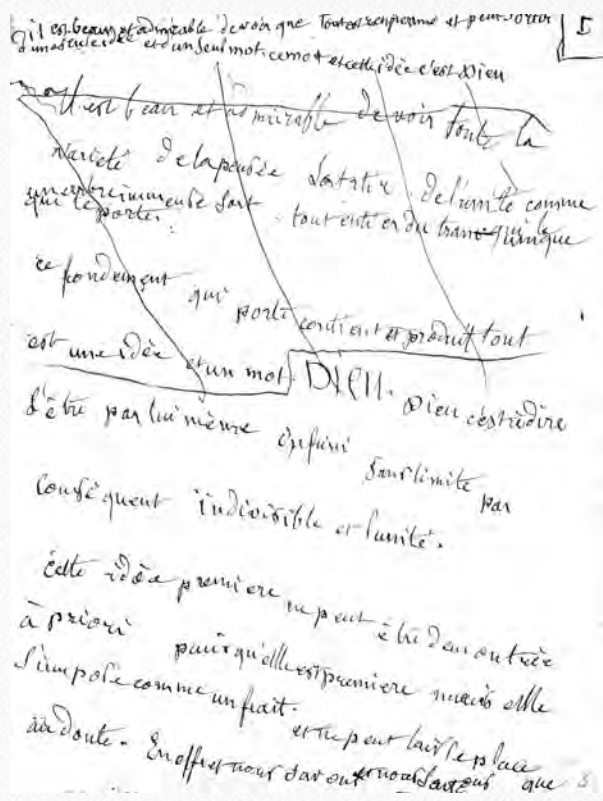 qu'il est beau et admirable de voir que tout est renfermé et peut sortir I
d'une seule idée et d'un seul mot ce mot et cette idée c'est Dieu
Il est beau et admirable de voir toute la
varieté de la pensée sortir de l'unité comme
un arbre immense sort tout entier du unique
qui le porte.
ce fondement qui porte contient et produit tout
est une idée et un mot. DIEU. Dieu c'est à dire
l'être par lui même infini sans limite par
conséquent indivisible et l'unité.
cette idée premiere ne peut être demontrée
à priori puisqu'elle est premiere mais elle
s'impose comme un fait. et ne peut laisse place
au doute. En effet nous savons et nous savons que